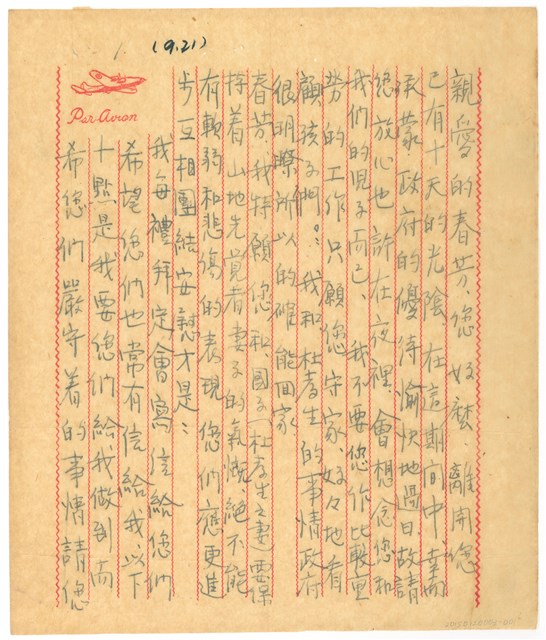 (9.21)
Par Avion
親愛的春芳、您好麼、離開您
已有十天的光陰、在這期間中、幸而
承蒙、政府的優待愉快地過日、故請
您放心也許在夜裡、會想念您和
我們的兒子而已、我不要您作比較重
勞的工作、只願您守家、好々地看
顧孩子們。我和杜孝生的事情政府
很明瞭所以的確能回家
春芳、我特願您和國子(杜孝生之妻)要保
持着山地先覚者妻子的氣慨、絕不能
有軟弱和悲傷的表現、您們應更進
步互相團結安慰才是:
我每禮拜定會寫信給您們
希望您們也常有信給我以下
十點是我要您們給我做到而
希您們嚴守着的事情請您